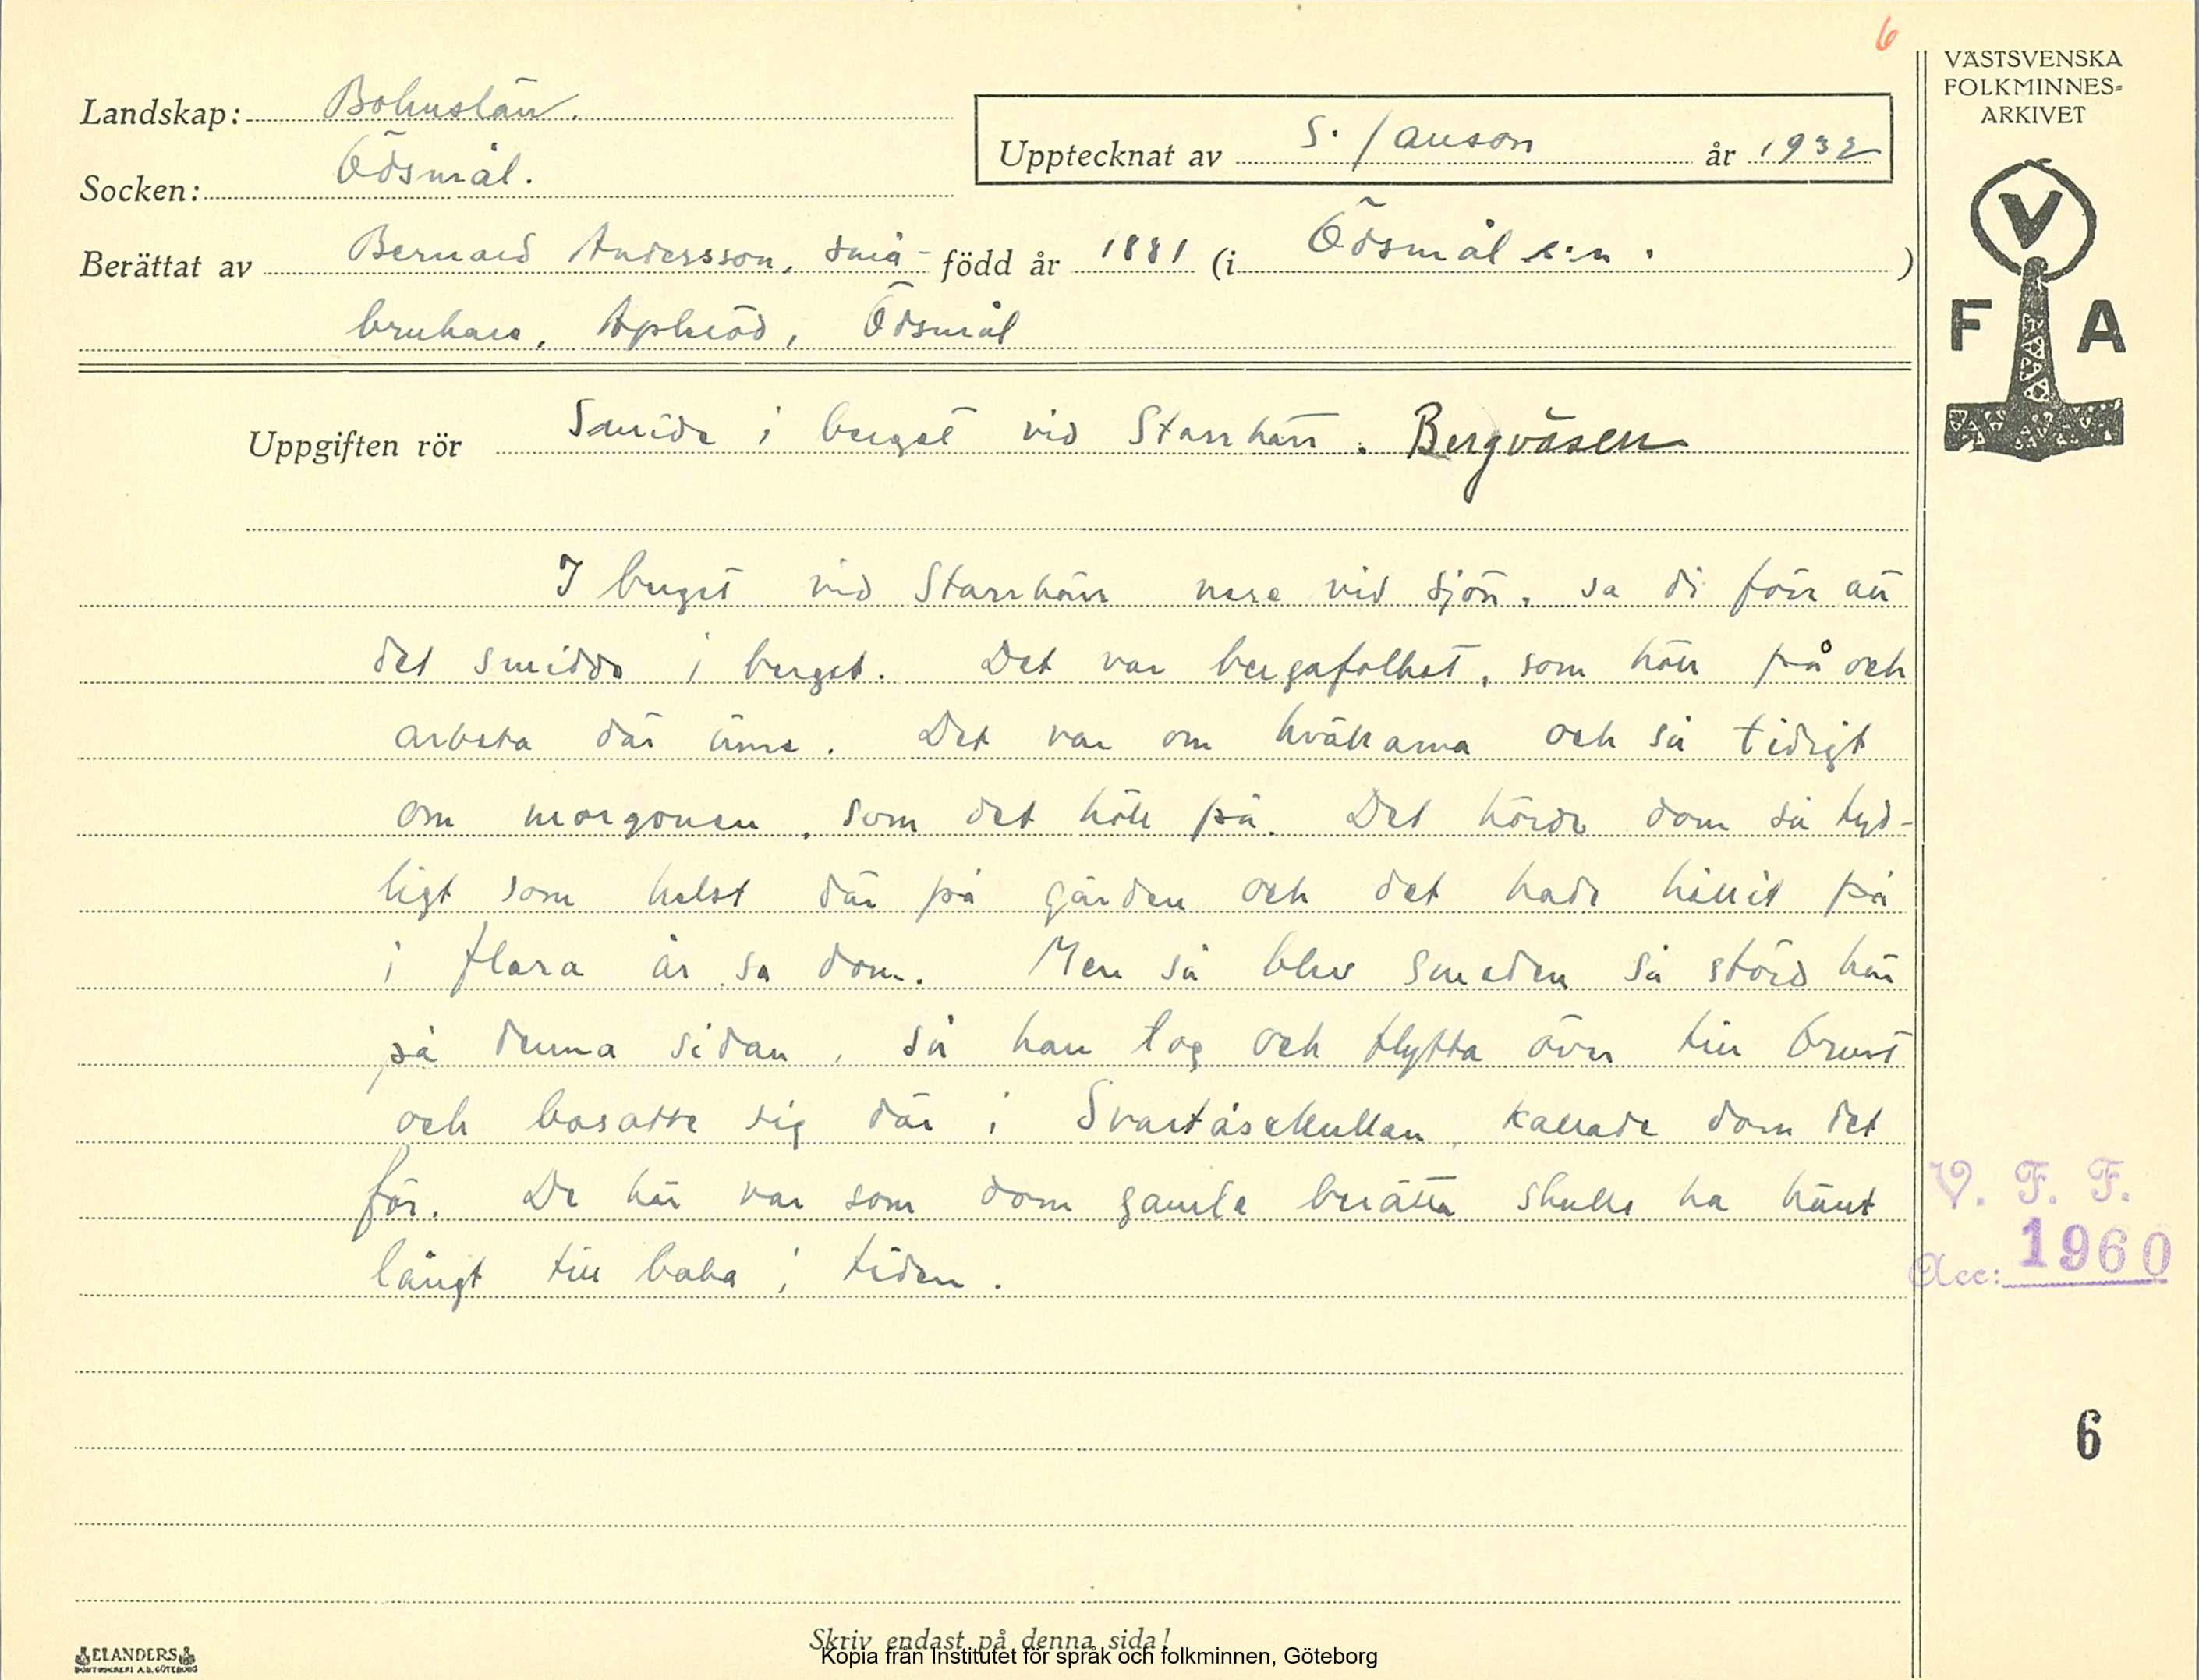 6
VÄSTSVENSKA
FOLKMINNES-
ARKIVET
Landskap: Bohuslän.
Upptecknat av S. Janson år 1932
Socken: Ödsmål.
Berättat av Bernard Andersson, små- född år 1881 (i Ödsmål s:n. )
brukare, Apleröd, Ödsmål
V
F A
Uppgiften rör Smide i berget vid Starrkärr. Bergväsen
I berget vid Starrkärr nere vid sjön, sa di förr att
det smidde i berget. Det var bergafolket, som höll på och
arbeta där inne. Det var om kvällarna och så tidigt
om morgonen, som det höll på. Det hörde dom så tyd-
ligt som helst där på gården och det hade hållit på
i flera år sa dom. Men så blev smeden så störd här
på denna sidan, så han tog och flytta över till Orust
och bosatte sig där i Svartåsekullan, kallade dom det
för. De här var som dom gamle berätta skulle ha hänt
långt till baka i tiden.
V. F. F.
Acc: 1960
6
Skriv endast på denna sida!
Kopia från Institutet för språk och folkminnen, Göteborg
ELANDERS
BOKTRYCKERI A.B. GÖTEBORG